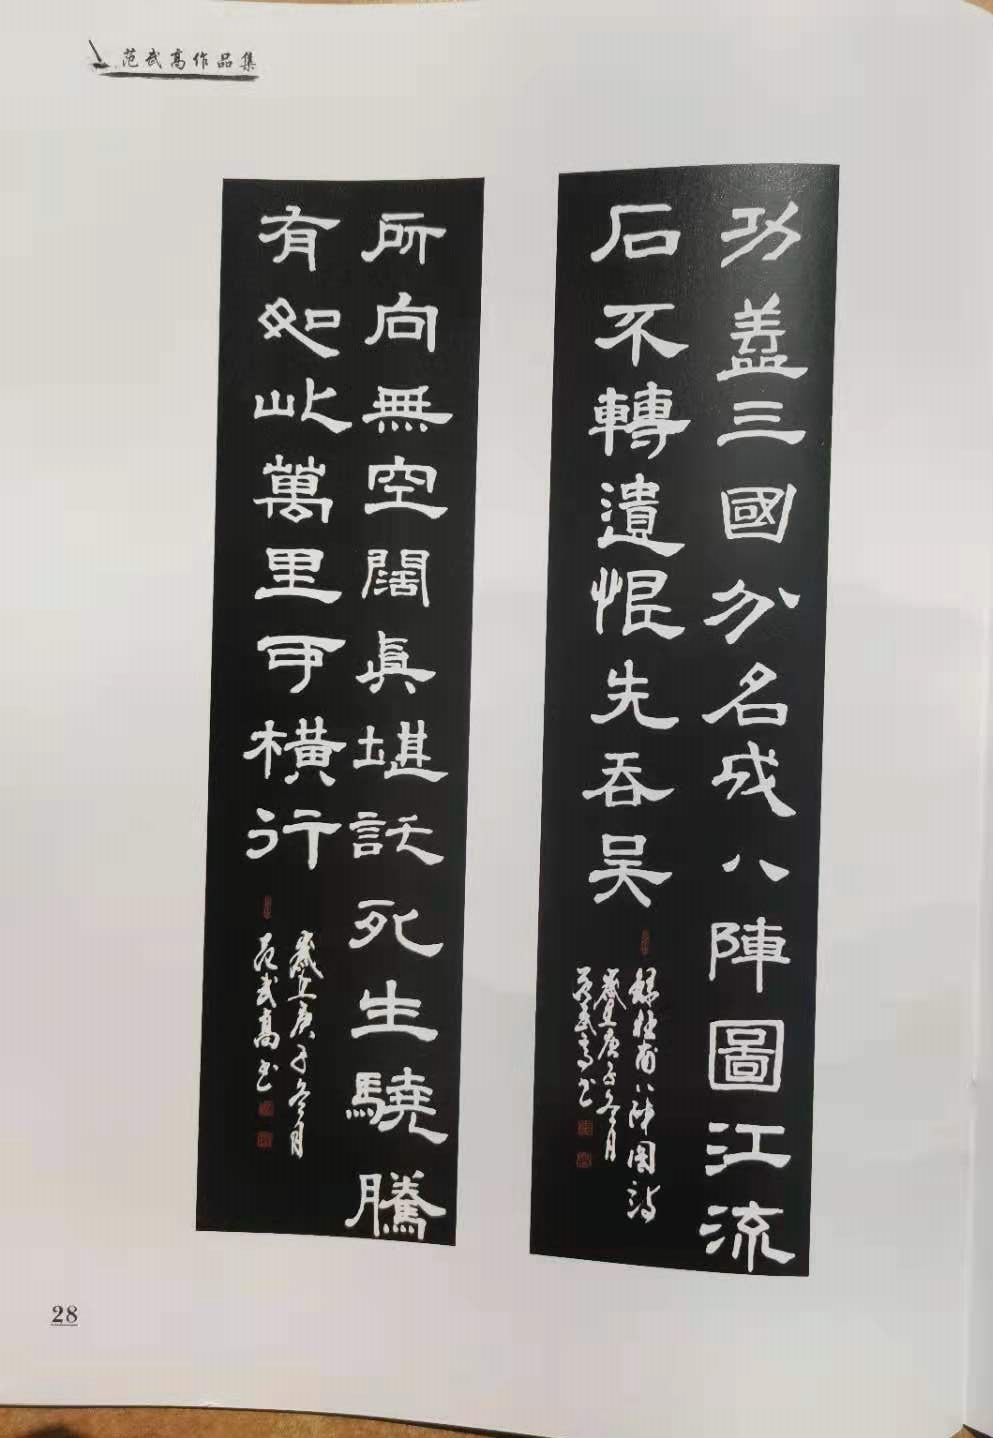 范武高作品集
功蓋三國分名成八陣圖江流
石不轉遺恨先吞吴
錄杜甫八陣图詩
歲在庚子冬月
范武高书
所向無空闊真堪託死生驍騰
有如此萬里可橫行
歲在庚子冬月
范武高书
28